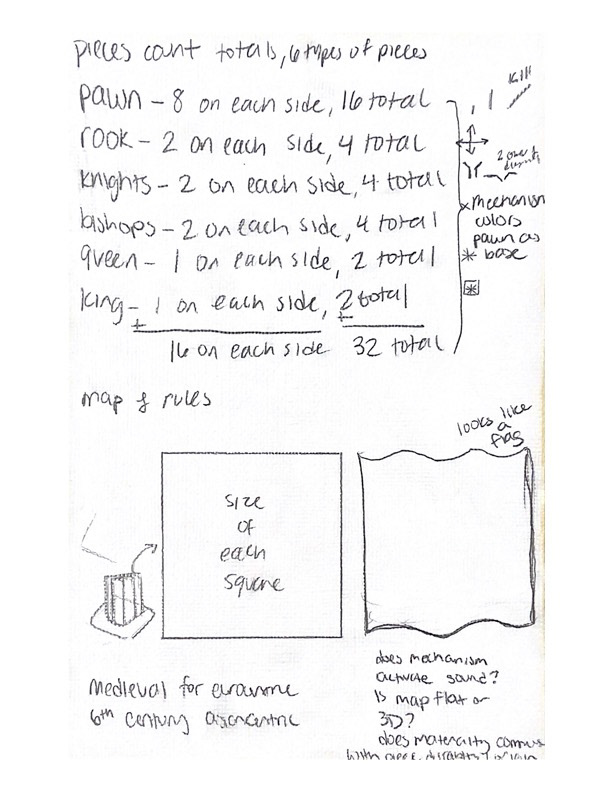 pieces count totals, 6 types of pieces
pawn – 8 on each side, 16 total
kill
rook – 2 on each side, 4 total
knights – 2 on each side, 4 total
2 over 1
bishops – 2 on each side, 4 total
mechanism
colors
pawn as
base
queen – 1 on each side, 2 total
king – 1 on each side, 2 total
16 on each side 32 total
map & rules
looks like
a
flag
size
of
each
square
medieval for
6th century
does mechanism
activate sound?
Is map flat or
3D?
does materiality
with piece,